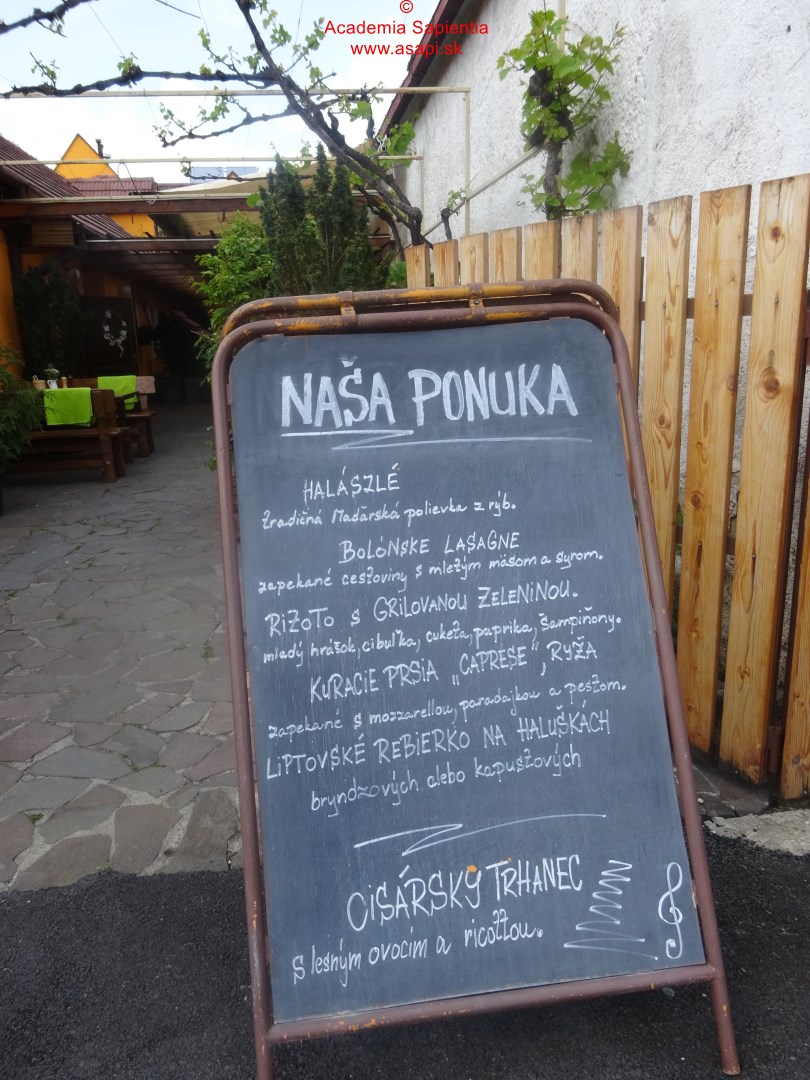 ©
Academia Sapientia
www.asapi.sk
NAŠA PONUKA
HALÁSZLÉ
Tradičná Maďarská polievka z rýb.
BOLÓNSKE LASAGNE
zapekané cestoviny s mletým mäsom a syrom.
RIZOTO S GRILOVANOU ZELENINOU.
mladý hrášok, cibuľka, cuketa, paprika, šampiňony.
KURACIE PRSIA „CAPRESE", RYŽA
zapekané s mozzarellou, paradajkou a pestom.
LIPTOVSKÉ REBIERKO NA HALUŠKÁCH
bryndzových alebo kapustových
CISÁRSKÝ TRHANEC
s lesným ovocím a ricottou.